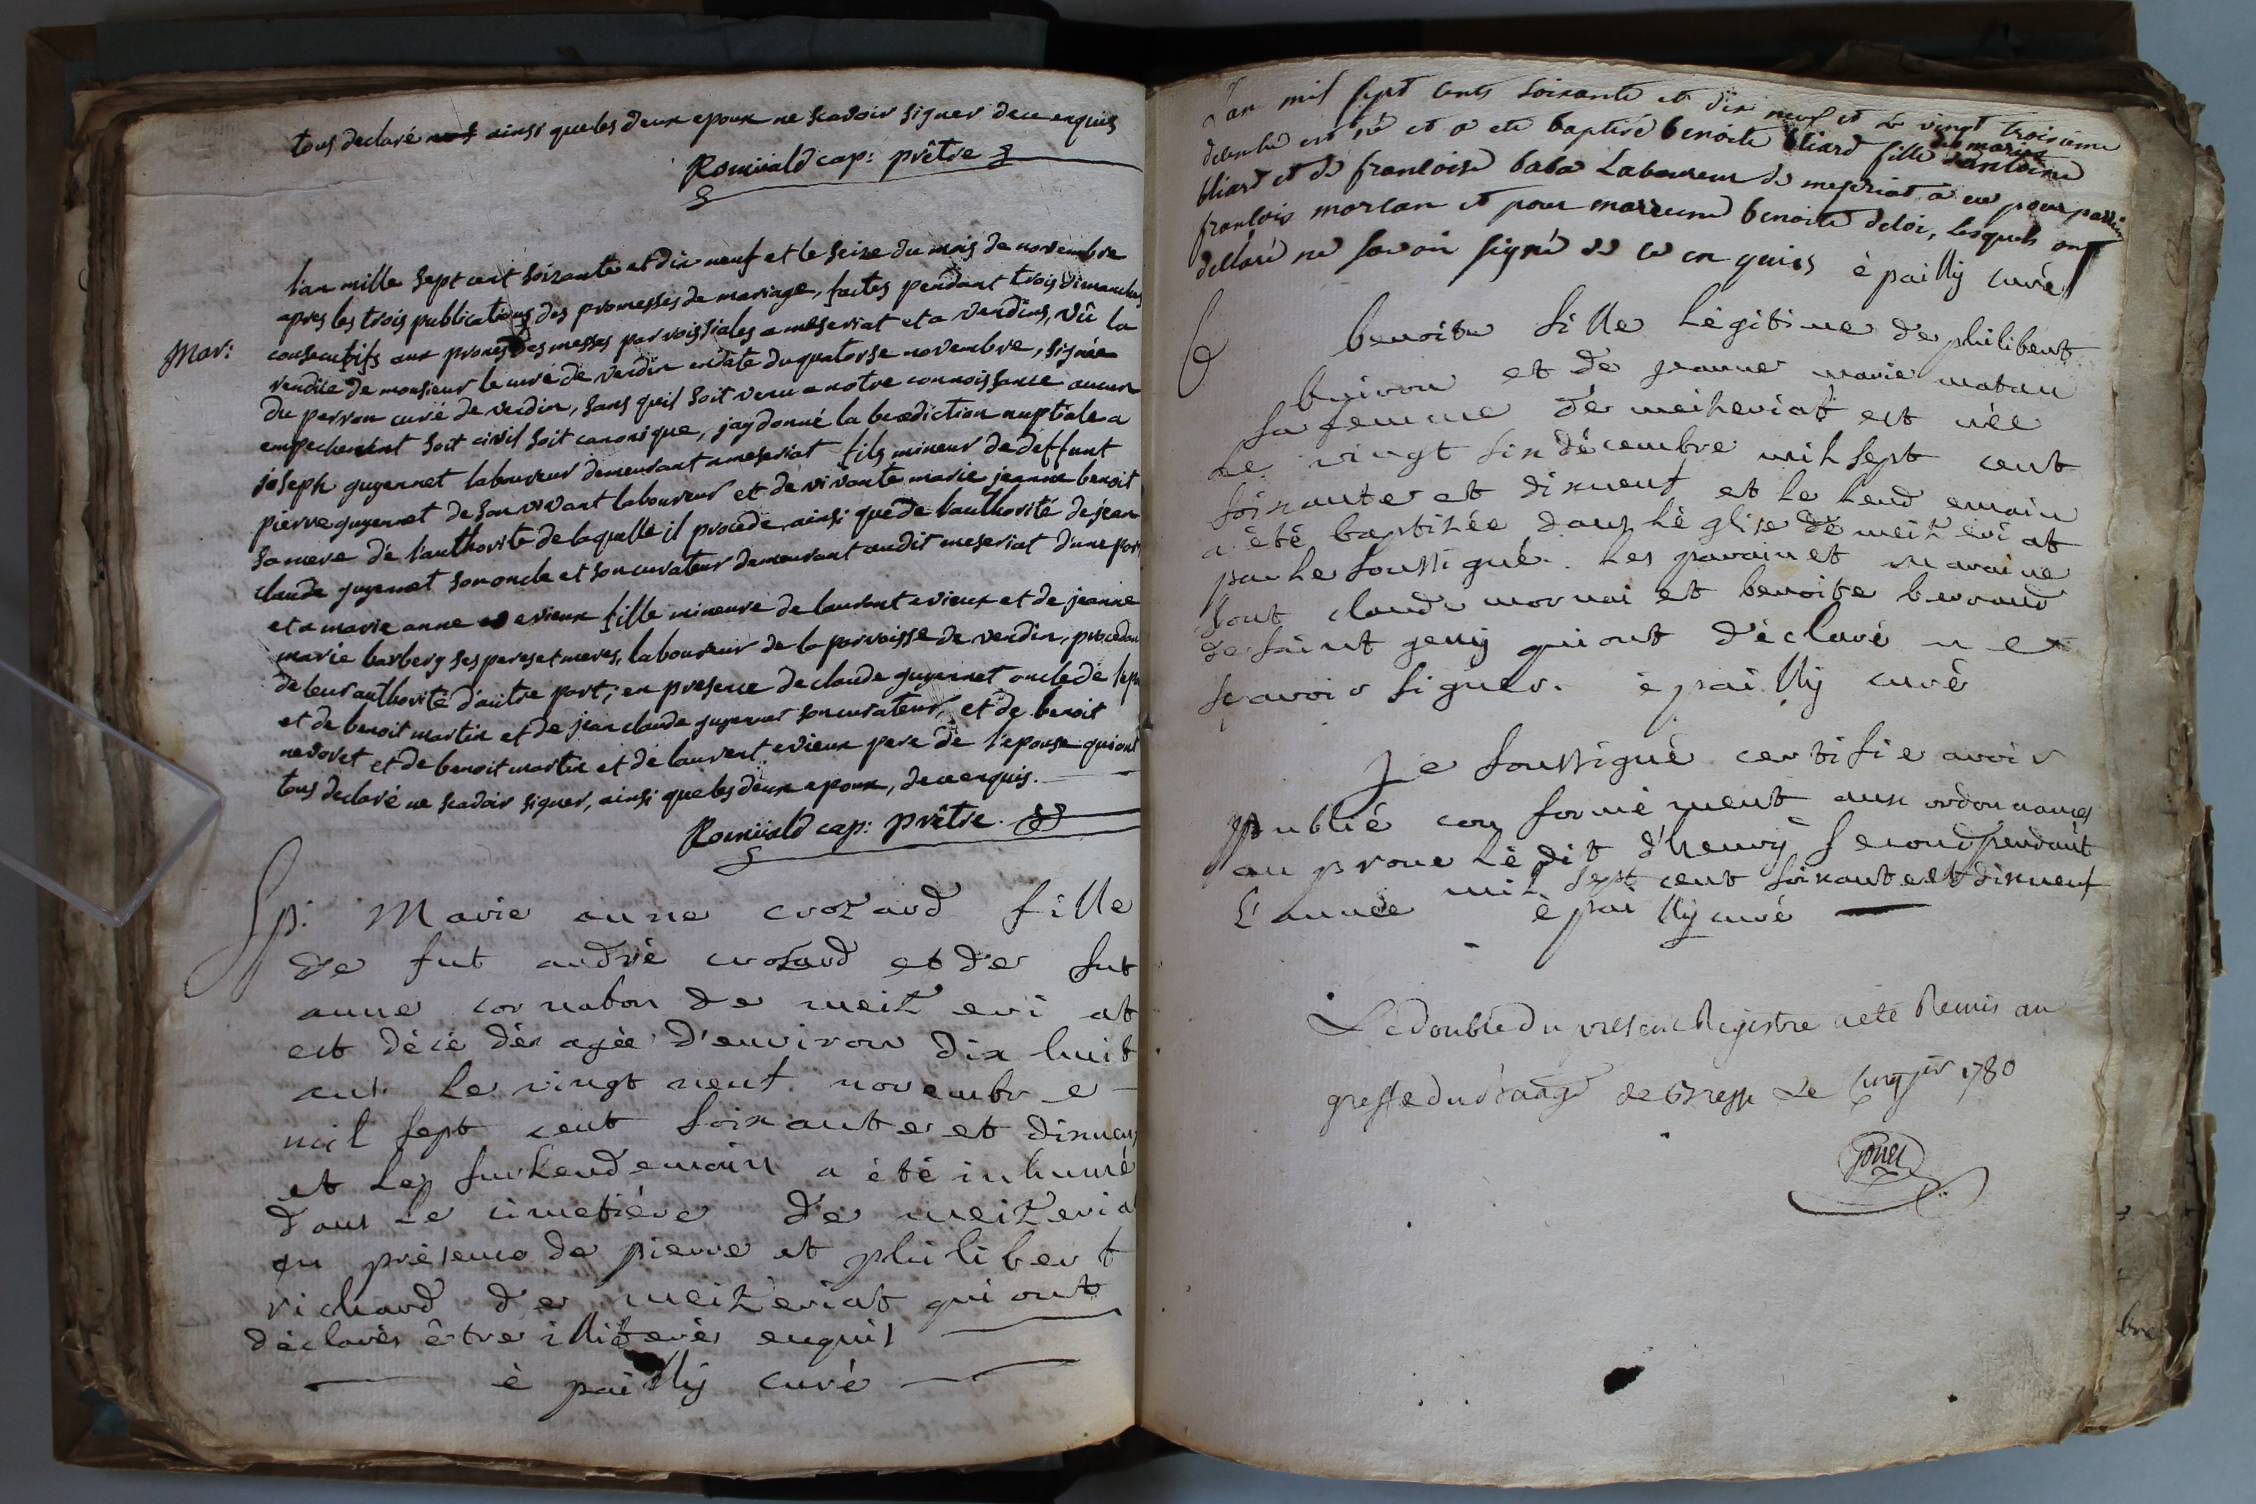 tous declaré ainsi queles deux epoux ne scavoir signer dece enquis
Romüald cap: prêtre
l'an mille sept cent soixante et dix neuf et le seize du mois de novembre
apres les trois publications des promesses de mariage, faites pendant trois dimanches
consecutifs aux prones des messes parroissiales a meseriat et a verdins, vû la
Mar:
rendüe de monsieur le curé de verdin en date du quatorse novembre, signée
du perron curé de verdin, sans quil soit venu a notre connoissance aucun
empechement soit civil soit canonique, jay donné la benediction nuptiale a
joseph guyennet laboureur demeurant a meseriat fils mineur de deffunt
pierre guyennet de son vivant laboureur et de vivante marie jeanne benoit
sa mere de l'authorité de laquelle il procede, ainsi que de l'authorité de jean
claude guyennet son oncle et son curateur demeurant audit meseriat d'une part
et a marie anne evieux fille mineure de laurent evieux et de jeanne
marie barbery ses peres et meres, laboureur de la parroisse de verdin, procedant
de leur authorité d'autre part; en presence de claude guyennet oncle de l'ep
et de benoit martin et de jean claude guyennet son curateur, et de benoit
nevoret et de benoit martin et de laurent evieux pere de l'epouse qui ont
tous declaré ne scavoir signer, ainsi que les deux epoux, de ce enquis.
Romüald cap: prêtre.
Sp. Marie anne crozard fille
de fut andré crozard et de fut
anne cornabon de meizeriat
est décédée agée d'environ dix huit
ans le vingt neuf novembre
mil sept cent soixante et dixneuf
et le surlendemain a été inhumé
dans le cimetiére de meizeriat
en présence de pierre et philibert
richard de meizeriat qui ont
déclarés être illiterés enquis
è pailly curé
L'an mil sept cents soixante et dix neuf et le vingt troisieme
decembre est né et a ete baptisé benoite bliard fille d'antoine
bliard et de francoise baba Laboureur de meseriat a eu pour parrin
francois morlan et pour marreine benoite deloi, lesquels ont
declaré ne savoir signé de ce enquis è pailly curé
B benoite fille légitime de philibert
buiron et de jeanne marie matan
sa femme de meizeriat est née
le vingt six décembre mil sept cent
soixante et dixneuf et le lendemain
a été baptisée dans l'église de meizeriat
par le soussigné. Les parain et maraine
sont claude mornai et benoite berraud
de saint geny qui ont déclaré ne
sçavoir signer. è pailly curé
Je soussigné certifie avoir
publié conformément aux ordonnances
au prone l'édit d'henry second pendant
L'année mil sept cent soixante et dixneuf
è pailly curé
Le double du present Registre a eté Remis au
greffe du de Bresse Le cinq jer 1780